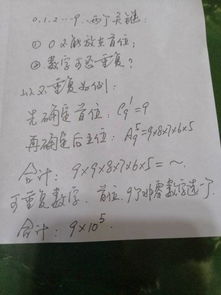 0.1.2…9. 两个关键:
① 0不能放在首位;
② 数字可否重复?
以不重复为例:
先确定首位: C₉¹=9
再确定后五位: A₉⁵=9×8×7×6×5
合计: 9×9×8×7×6×5=~.
可重复数字. 首位. 9个非零数字选一个
合计: 9×10⁵.